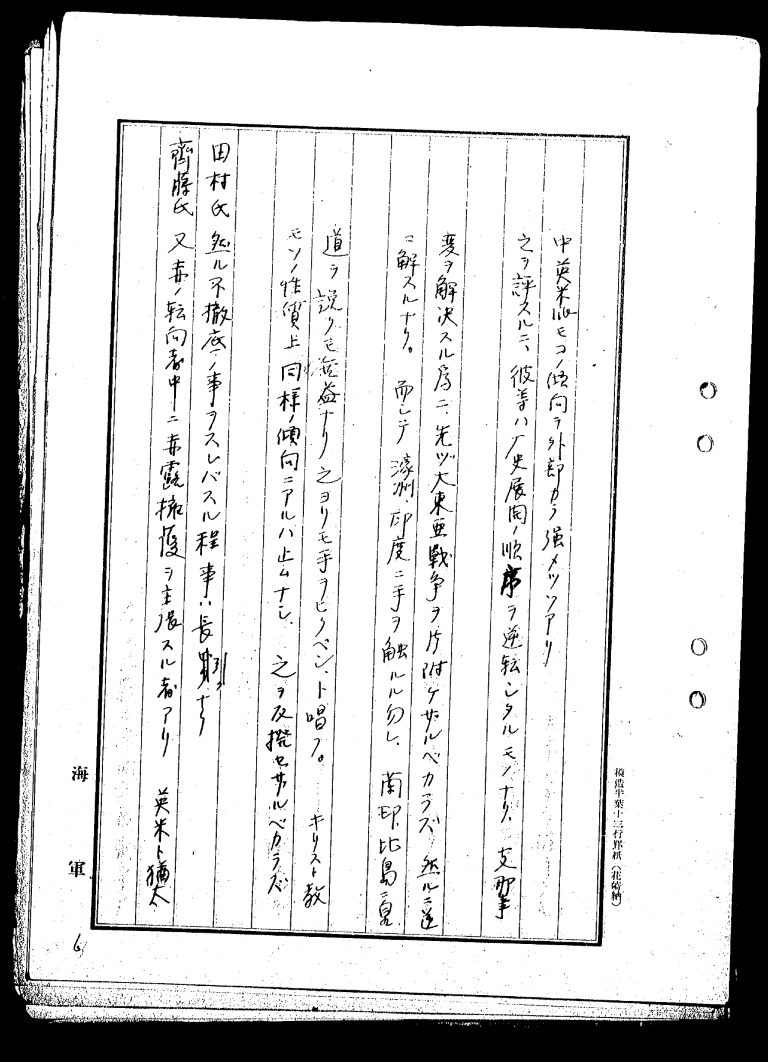 中英米派モコノ傾向ヲ外部カラ強メツツアリ
之ヲ評スルニ、彼等ハ歴史展開ノ順序ヲ逆転シタルモノナリ、支那事
変ヲ解決スル為ニ、先ヅ大東亜戦争ヲ片附ケザルベカラズ 然ルニ逆
ニ解スルナリ。 而シテ 濠洲、印度ニ手ヲ触ルル勿レ、蘭印、比島ニ皇
道ヲ説クモ無益ナリ 之ヨリモ手ヲヒクベシ、ト唱フ。 キリスト教
モソノ性質上同様ノ傾向ニアルハ止ムナシ、 之ヲ反撥セザルベカラズ
田村氏 然ル不徹底ノ事ヲスレバスル程 事ハ長引クナリ
齊藤氏 又赤ノ転向者中ニ赤露擁護ヲ主張スル者アリ 英米ト猶太
海軍
模造半葉十三行罫紙(花崎納)
6